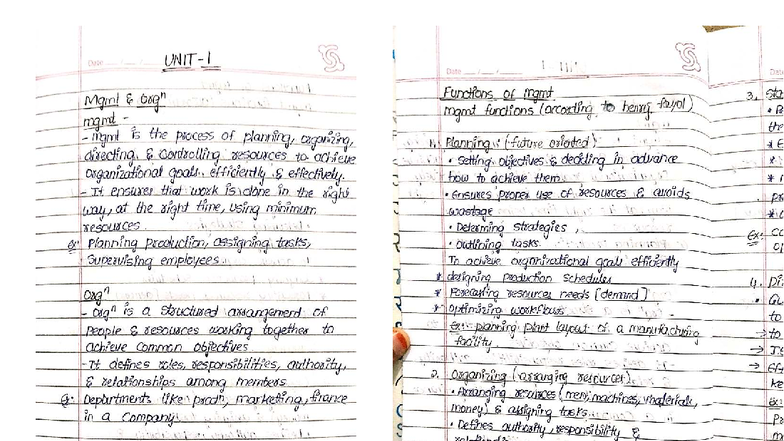 Date
UNIT-1
Mgmt & orgⁿ
mgmt -
- mgmt is the process of planning, organizing,
directing & controlling resources to achieve
organizational goals efficiently & effectively.
- It ensures that work is done in the right
way, at the right time, using minimum
resources
Ex: Planning production, assigning tasks,
supervising employees
Orgⁿ
- orgⁿ is a structured arrangement of
people & resources working together to
achieve common objectives
- It defines roles, responsibilities, authority,
& relationships among members
Ex: Departments like prodⁿ, marketing, finance
in a company.
Date
Functions of mgmt
mgmt functions (according to henry fayol)
1. Planning : (future oriented)
• Setting objectives & deciding in advance
how to achieve them
• Ensures proper use of resources & avoids
wastage
• Determing strategies,
• Outlining tasks
To achieve organizational goals efficiently
* designing production schedules
* Forecasting resources needs [demand]
* Optimizing workflows
Ex: planning plant layout of a manufacturing
facility
2. Organizing (arranging resources)
• Arranging resources (men, machines, materials,
money) & assigning tasks
• Defines authority, responsibility &
3.
Ex:
4.